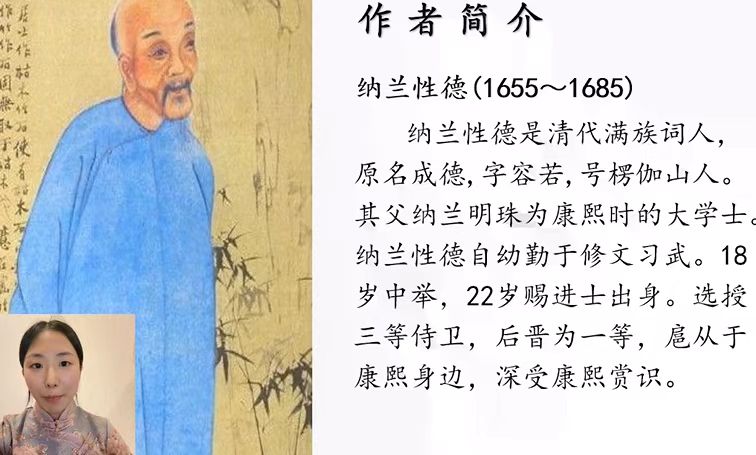 作者简介
纳兰性德(1655～1685)
纳兰性德是清代满族词人，
原名成德,字容若,号楞伽山人。
其父纳兰明珠为康熙时的大学士。
纳兰性德自幼勤于修文习武。18
岁中举，22岁赐进士出身。选授
三等侍卫，后晋为一等，扈从于
康熙身边，深受康熙赏识。